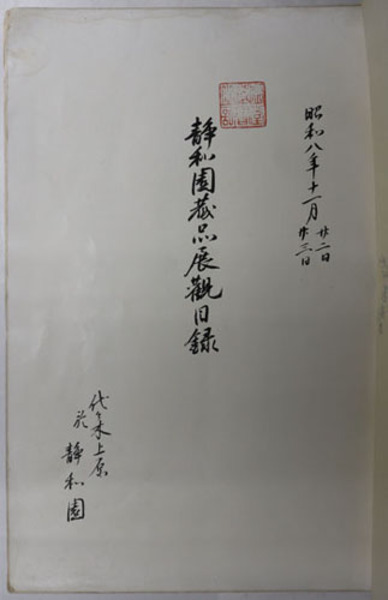 昭和八年十一月廿二日
廿三日
静和園蔵品展観目録
代々木上原
於
静和園